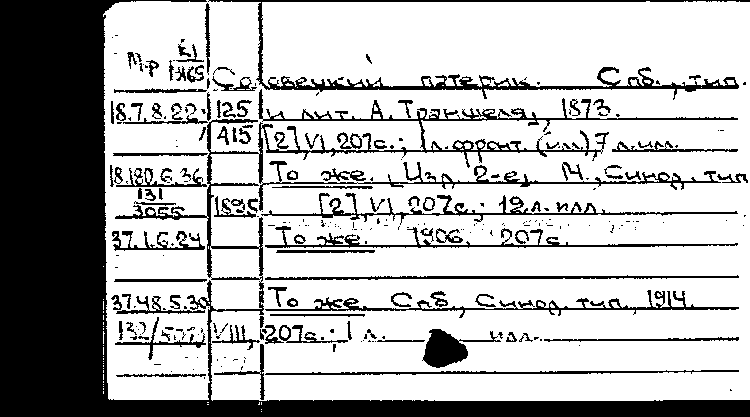 М-р Е1/1365 Соловецкий патерик. Спб., тип.
18.7.8.22. 125 и лит. А. Траншеля, 1873.
415 [2], VI, 207с.; 1л.фронт. (илл), 7 л.илл.
18.180.6.36 То же. [Изд. 2-е]. М., Синод. тип.
131/3055 1895. [2], VI, 207с.; 12л. илл.
37.1.6.24 То же. 1906. 207с.
37.48.5.30 То же. Спб., Синод. тип., 1914.
VIII, 207с.; 1 л. илл.